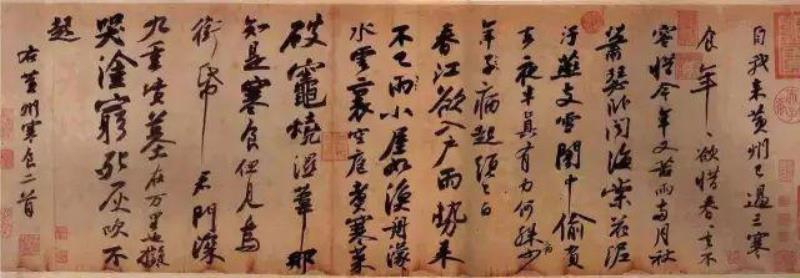 自我来黄州已過三寒
食年〻欲惜春〻去不
容惜今年又苦雨兩月秋
蕭瑟卧聞海棠花泥
汙燕支雪闇中偷負
去夜半真有力何殊病少
年子病起須已白
春江欲入户雨勢来
不已雨小屋如漁舟濛〻
水雲裏空庖煮寒菜
破竈燒濕葦那
知是寒食但見烏
銜帋君門深
九重墳墓在万里也擬
哭塗窮死灰吹不
起
右黄州寒食二首